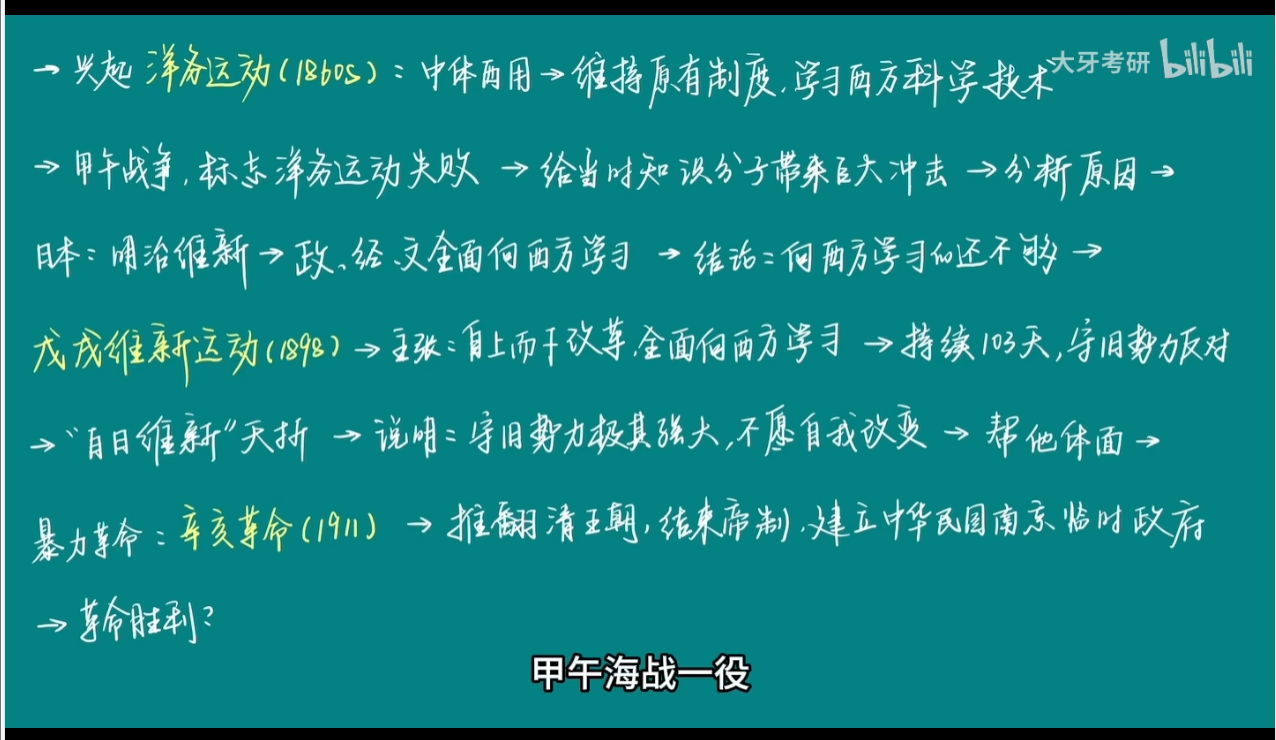 → 兴起 洋务运动(1860s)：中体西用→维持原有制度,学习西方科学技术
大牙考研 bilibili
→ 甲午战争,标志洋务运动失败 → 给当时知识分子带来巨大冲击 → 分析原因→
日本：明治维新→政、经、文全面向西方学习 → 结论：向西方学习的还不够 →
戊戌维新运动(1898) → 主张：自上而下改革,全面向西方学习 → 持续103天,守旧势力反对
→ "百日维新"夭折 → 说明：守旧势力极其强大,不愿自我改变 → 帮他体面 →
暴力革命：辛亥革命(1911) → 推翻清王朝,结束帝制,建立中华民国南京临时政府
→ 革命胜利?
甲午海战一役